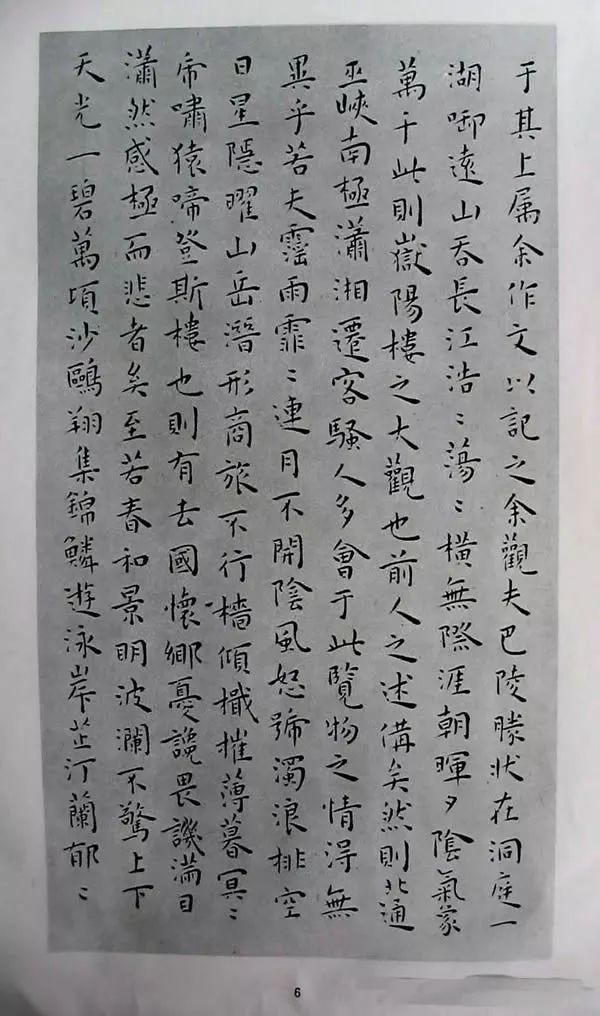 于其上属余作文以記之余觀夫巴陵勝状在洞庭一
湖啣遠山吞長江浩〻蕩〻橫無際涯朝暉夕陰氣象
萬千此則嶽陽樓之大觀也前人之述備矣然則北通
巫峽南極瀟湘遷客騷人多會于此覽物之情淂無
異乎若夫霪雨霏〻連月不開陰風怒號濁浪排空
日星隱曜山岳潛形商旅不行檣傾檝摧薄暮冥〻
乕嘯猿啼登斯樓也則有去國懷鄉憂讒畏譏滿目
瀟然感極而悲者矣至若春和景明波瀾不驚上下
天光一碧萬頃沙鷗翔集錦鱗遊泳岸芷汀蘭郁〻
6